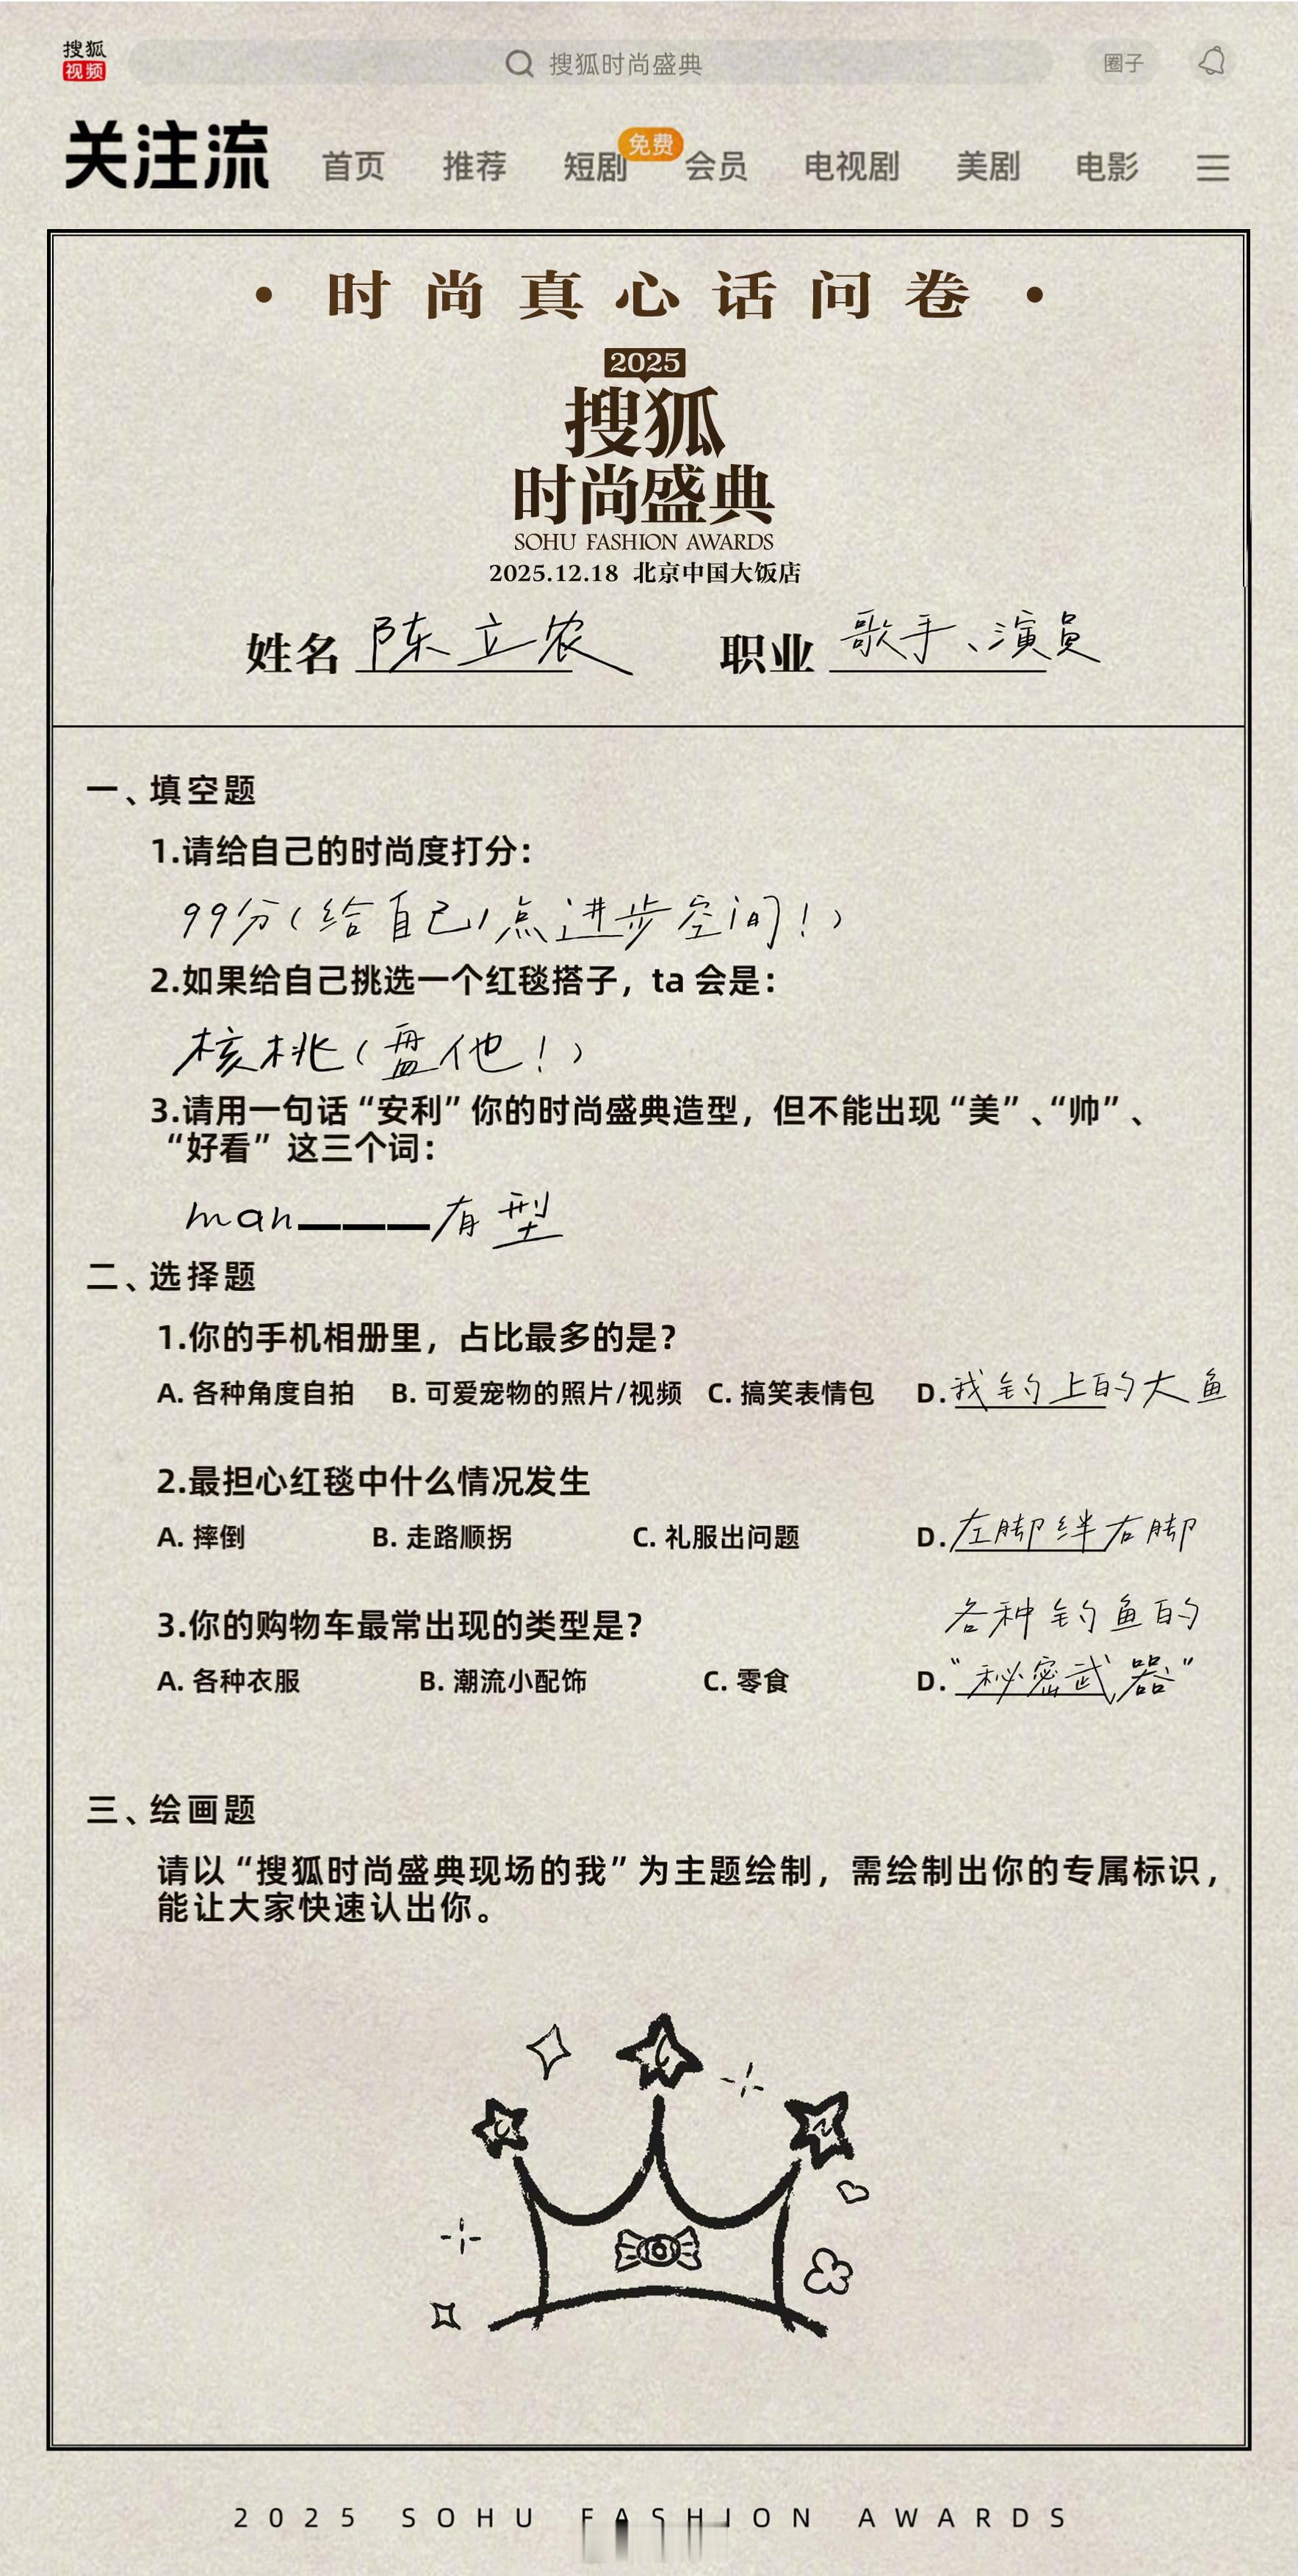 搜狐
视频
搜狐时尚盛典
圈子
关注流 首页 推荐 短剧 免费 会员 电视剧 美剧 电影
• 时尚真心话问卷 •
2025
搜狐
时尚盛典
SOHU FASHION AWARDS
2025.12.18 北京中国大饭店
姓名 陈立农 职业 歌手、演員
一、填空题
1.请给自己的时尚度打分：
99分(给自己1点进步空间!)
2.如果给自己挑选一个红毯搭子，ta 会是：
核桃(盘他!)
3.请用一句话“安利”你的时尚盛典造型，但不能出现“美”、“帅”、
“好看” 这三个词：
man———有型
二、选择题
1.你的手机相册里，占比最多的是？
A. 各种角度自拍 B. 可爱宠物的照片/视频 C. 搞笑表情包 D. 我钓上的大鱼
2.最担心红毯中什么情况发生
A. 摔倒 B. 走路顺拐 C. 礼服出问题 D. 左脚绊右脚
3.你的购物车最常出现的类型是？
A. 各种衣服 B. 潮流小配饰 C. 零食 D. 各种钓鱼的
“秘密武器”
三、绘画题
请以“搜狐时尚盛典现场的我”为主题绘制，需绘制出你的专属标识，
能让大家快速认出你。
2025 SOHU FASHION AWARDS